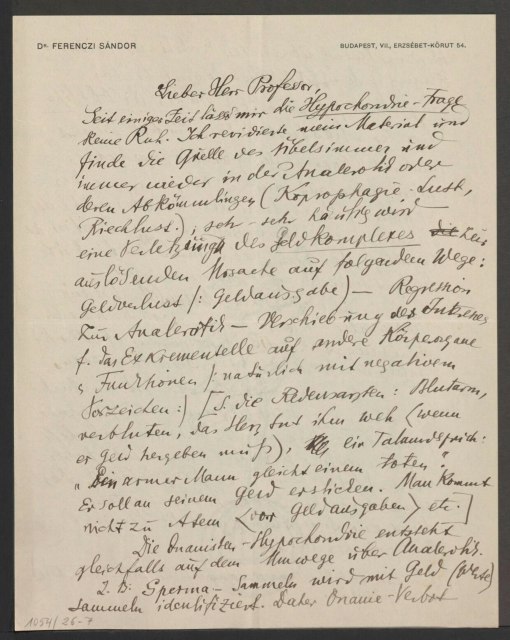 Dr. FERENCZI SÁNDOR
BUDAPEST, VII., ERZSÉBET-KÖRUT 54.
Lieber Herr Professor,
Seit einiger Zeit lässt mir die Hypochondrie-Frage
keine Ruh. Ich revidierte mein Material und
finde die Quelle des Übels immer und
immer wieder in der Analerotik oder
deren Abkömmlingen (Koprophagie-Lust,
Riechlust.), sehr-sehr häufig wird
eine Verletzung des Geldkomplexes die zur
auslösenden Ursache auf folgendem Wege:
Geldverlust /: Geldausgabe) — Regression
zur Analerotik — Verschiebung des Interesses
f. das Exkrementelle auf andere Körperorgane
u Funktionen /: natürlich mit negativem
Vorzeichen:) [S. die Redensarten: Blutarm,
verbluten, das Herz tut ihm weh (wenn
er Geld hergeben muß), ein Talmudspruch:
„Ein armer Mann gleicht einem toten."
Er soll an seinem Geld ersticken. Man kommt
nicht zu Atem (vor Geldausgaben) etc.]
Die Onanisten-Hypochondrie entsteht
gleichfalls auf dem Umwege über Analerotik.
Z. B: Sperma-Sammeln wird mit Geld (Werte)
sammeln identifiziert. Daher Onanie-Verbot
1054/26-7